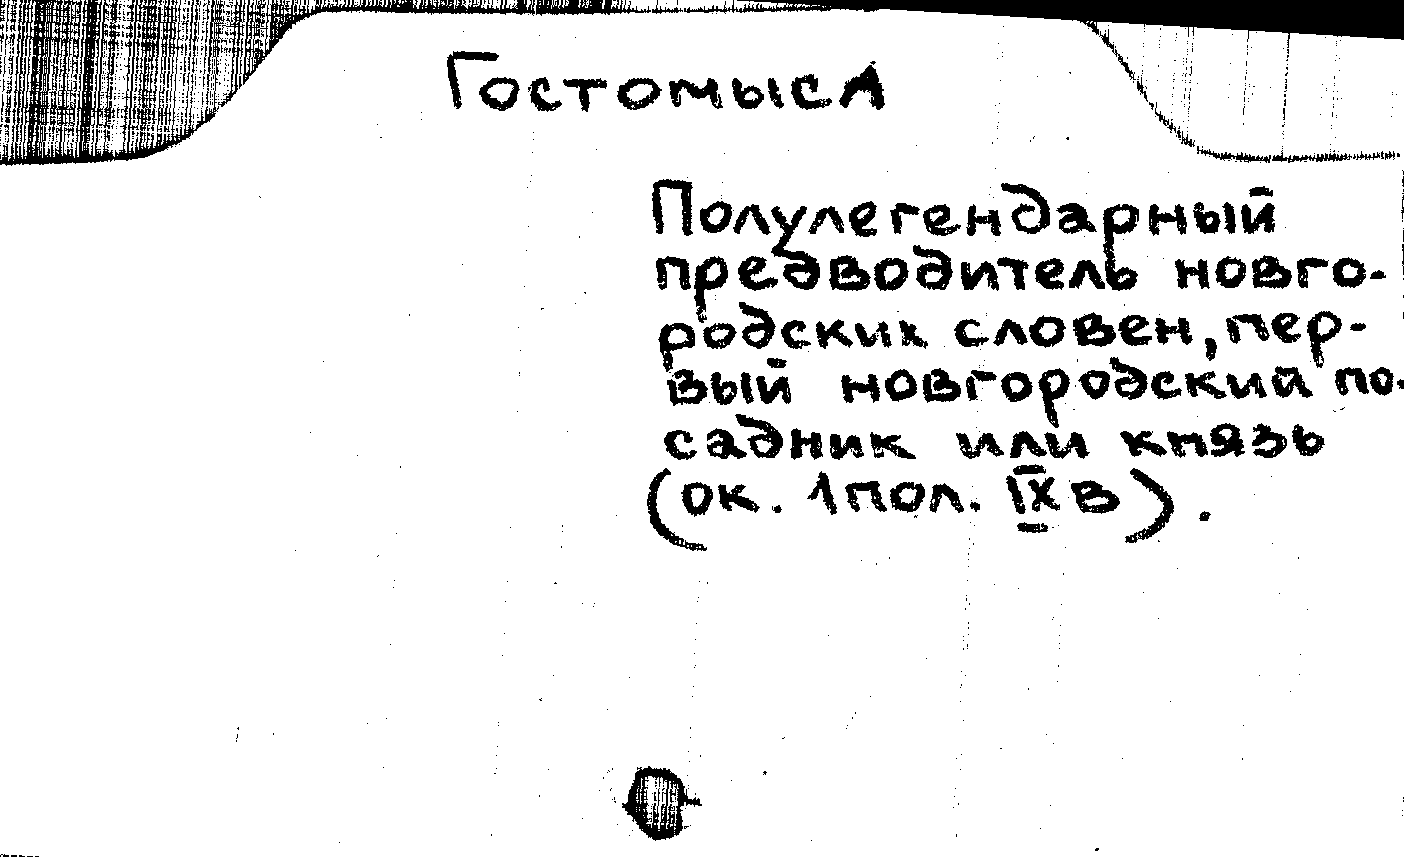 Гостомысл
Полулегендарный
предводитель новго-
родских словен, пер-
вый новгородский по-
садник или князь
(ок. 1 пол. IX в).